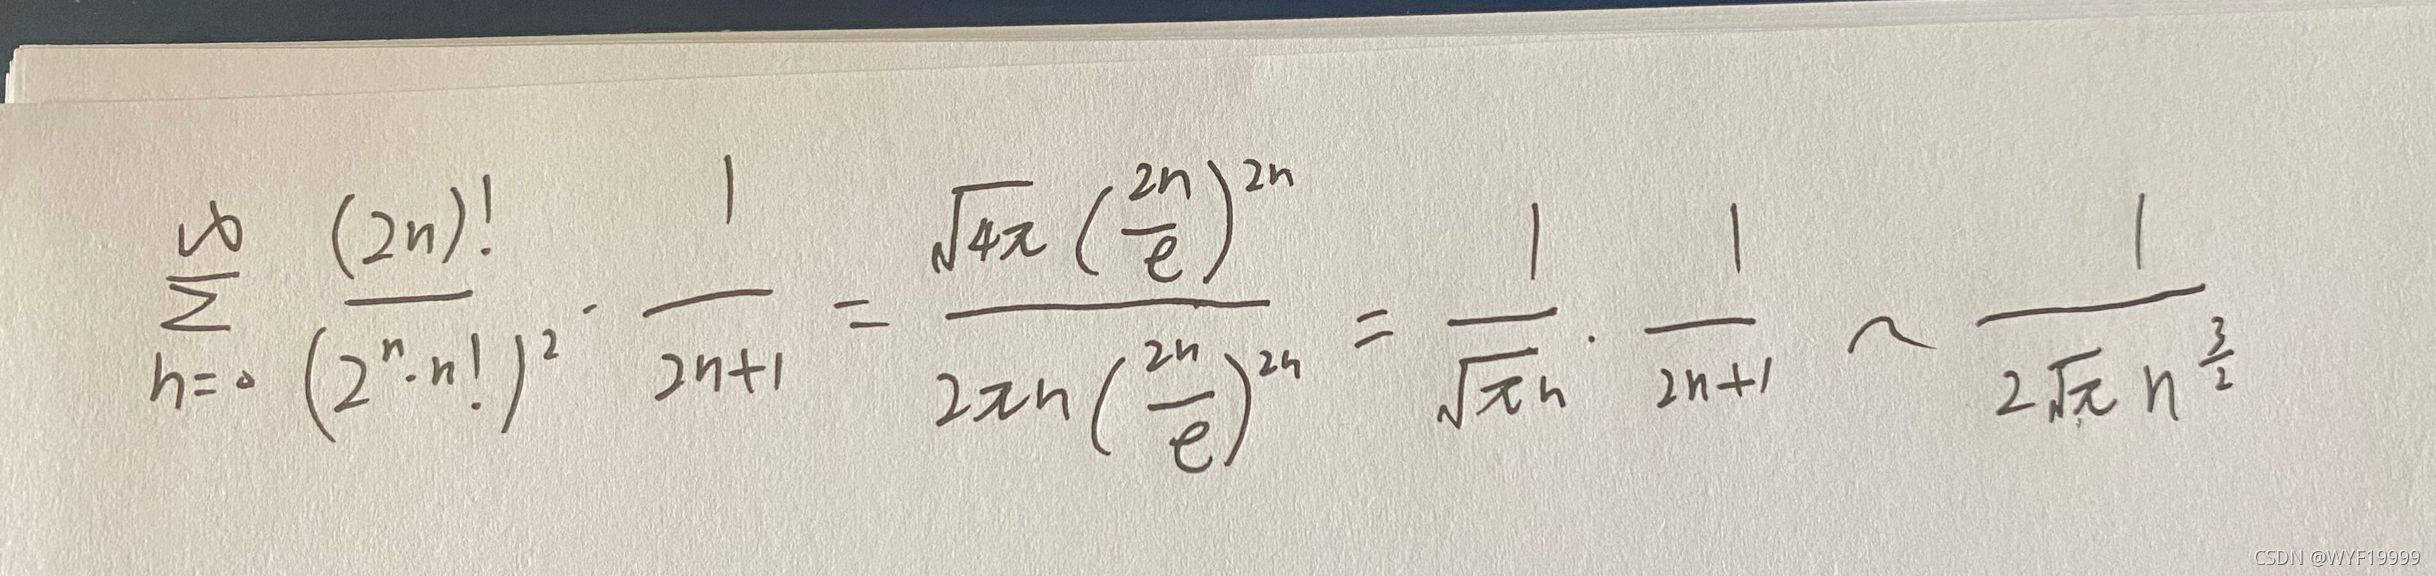 $\sum_{n=0}^{\infty} \frac{(2n)!}{(2^n \cdot n!)^2} \cdot \frac{1}{2n+1} = \frac{\sqrt{4\pi} \left(\frac{2n}{e}\right)^{2n}}{2\pi n \left(\frac{2n}{e}\right)^{2n}} = \frac{1}{\sqrt{\pi} n} \cdot \frac{1}{2n+1} \sim \frac{1}{2\sqrt{\pi} n^{\frac{3}{2}}}$
CSDN @WYF19999